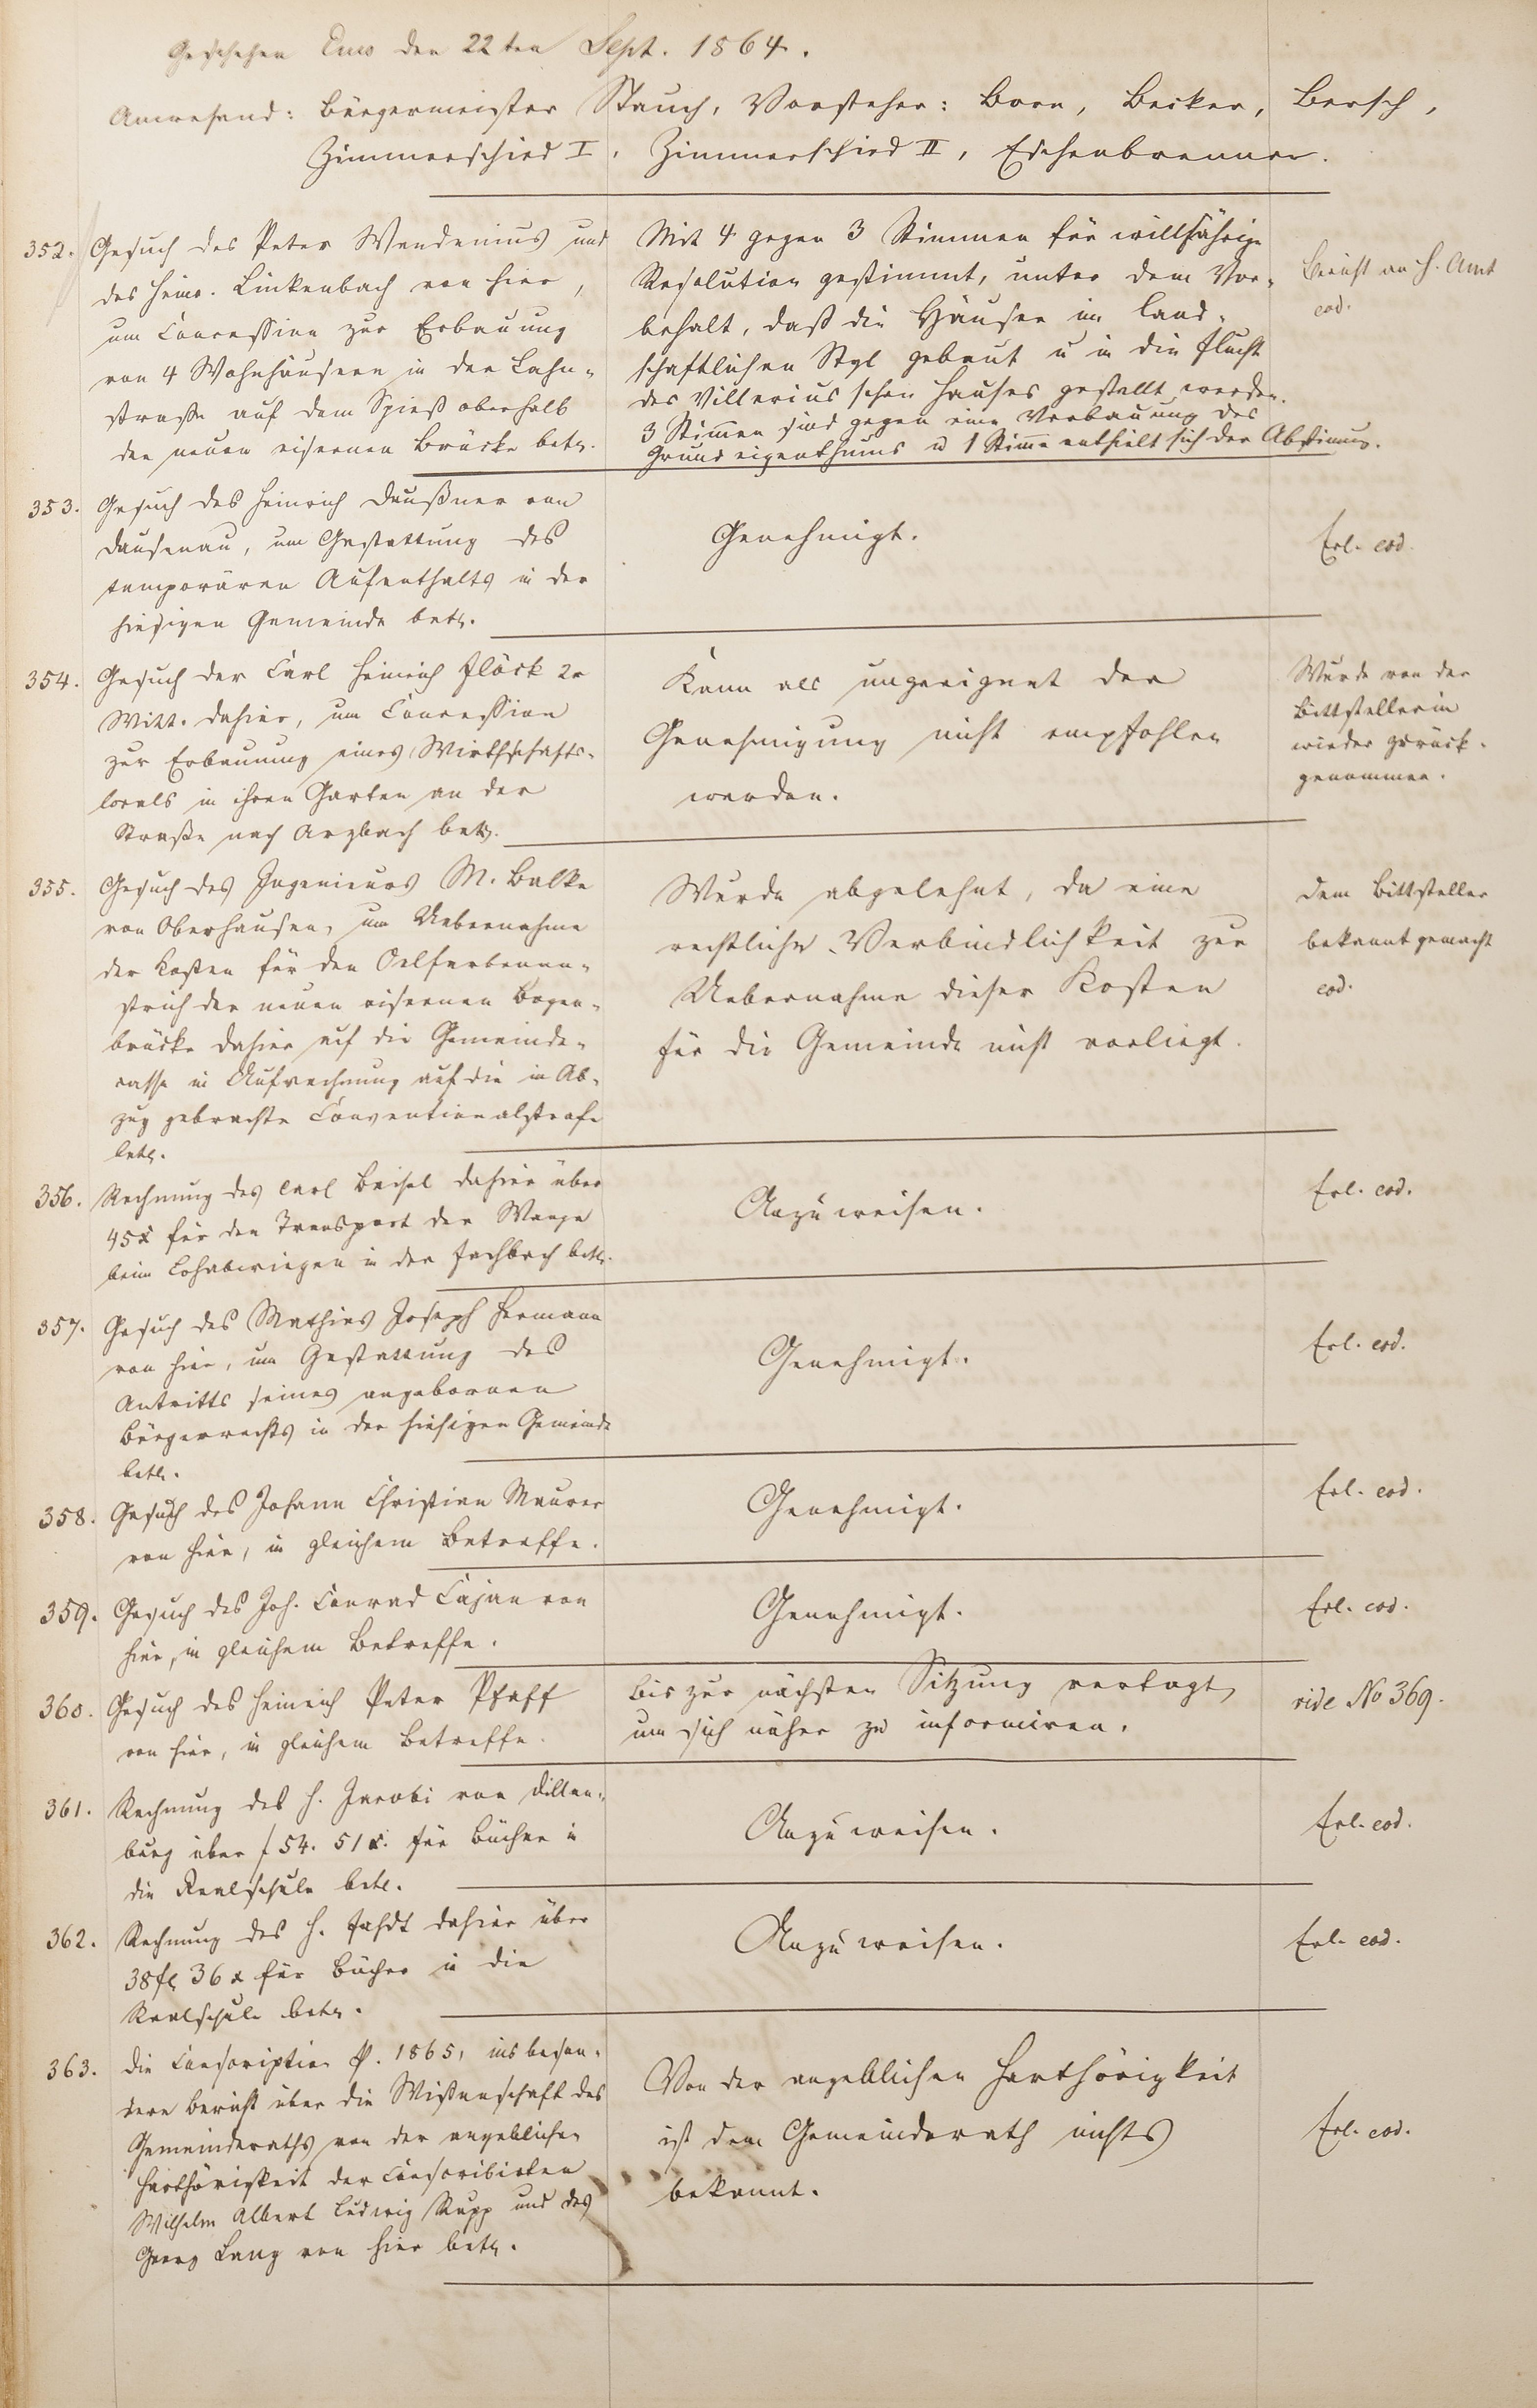 Geschehen Ems den 22ten Sept. 1864.
Anwesend: Bürgermeister Stauch, Vorsteher: Born, Becker, Bersch,
Zimmerschied I, Zimmerschied II, Eschenbrenner.
352. Gesuch des Peter Wendenius und
des Heinr. Linkenbach von hier,
um Concession zur Erbauung
von 4 Wohnhäusern in der Lahn-
straße auf dem Spieß oberhalb
der neuen eisernen Brücke betr.
Mit 4 gegen 3 Stimmen für willfährige
Resolution gestimmt, unter dem Vor-
behalt, daß die Häuser im land-
schaftlichen Styl gebaut u in die Flucht
des Villerius'schen Hauses gestellt werden.
3 Stimmen sind gegen eine Verbauung des
Grundeigenthums u 1 Stimme enthielt sich der Abstimmg.
Bericht an H. Amt
eod.
353. Gesuch des Heinrich Daußner von
Dausenau, um Gestattung des
temporären Aufenthalts in der
hiesigen Gemeinde betr.
Genehmigt.
Erl. eod.
354. Gesuch der Carl Heinrich Flöck 2r
Witt. dahier, um Concession
zur Erbauung eines Wirthschafts-
locals in ihren Garten an der
Straße nach Arzbach betr.
Kann als ungeeignet der
Genehmigung nicht empfohlen
werden.
Wurde von der
Bittstellerin
wieder zurück-
genommen.
355. Gesuch des Ingenieurs M. Balke
von Oberhausen, um Uebernahme
der Kosten für den Oelfarbenan-
strich der neuen eisernen Bogen-
brücke dahier auf die Gemeinde-
casse in Aufrechnung auf die in Ab-
zug gebrachte Conventionalstrafe
betr.
Wurde abgelehnt, da eine
rechtliche Verbindlichkeit zur
Uebernahme dieser Kosten
für die Gemeinde nicht vorliegt.
Dem Bittsteller
bekannt gemacht
eod.
356. Rechnung des Carl Beisel dahier über
45x für den Transport der Waage
beim Lohabwiegen in der Fachbach betr.
Anzuweisen.
Erl. eod.
357. Gesuch des Mathias Joseph Hermann
von hier, um Gestattung des
Antritts seines angebornen
Bürgerrechts in der hiesigen Gemeinde
betr.
Genehmigt.
Erl. eod.
358. Gesuch des Johann Christian Maurer
von hier, in gleichem Betreffe.
Genehmigt.
Erl. eod.
359. Gesuch des Joh. Conrad Cajan von
hier, in gleichem Betreffe.
Genehmigt.
Erl. eod.
360. Gesuch des Heinrich Peter Pfaff
von hier, in gleichem Betreffe.
bis zur nächsten Sitzung vertagt,
um sich näher zu informiren.
vide No 369.
361. Rechnung des H. Jacobi von Dillen-
burg über f 54. 51 x. für Bücher in
die Realschule betr.
Anzuweisen.
Erl. eod.
362. Rechnung des H. Fahdt dahier über
38 fl 36 x für Bücher in die
Realschule betr.
Anzuweisen.
Erl. eod.
363. Die Conscription p. 1865, insbeson-
dere Bericht über die Wissenschaft des
Gemeinderaths von der angeblichen
Harthörigkeit der Conscribirten
Wilhelm Albert Ludwig Rupp und des
Georg Lang von hier betr.
Von der angeblichen Harthörigkeit
ist dem Gemeinderath nichts
bekannt.
Erl. eod.